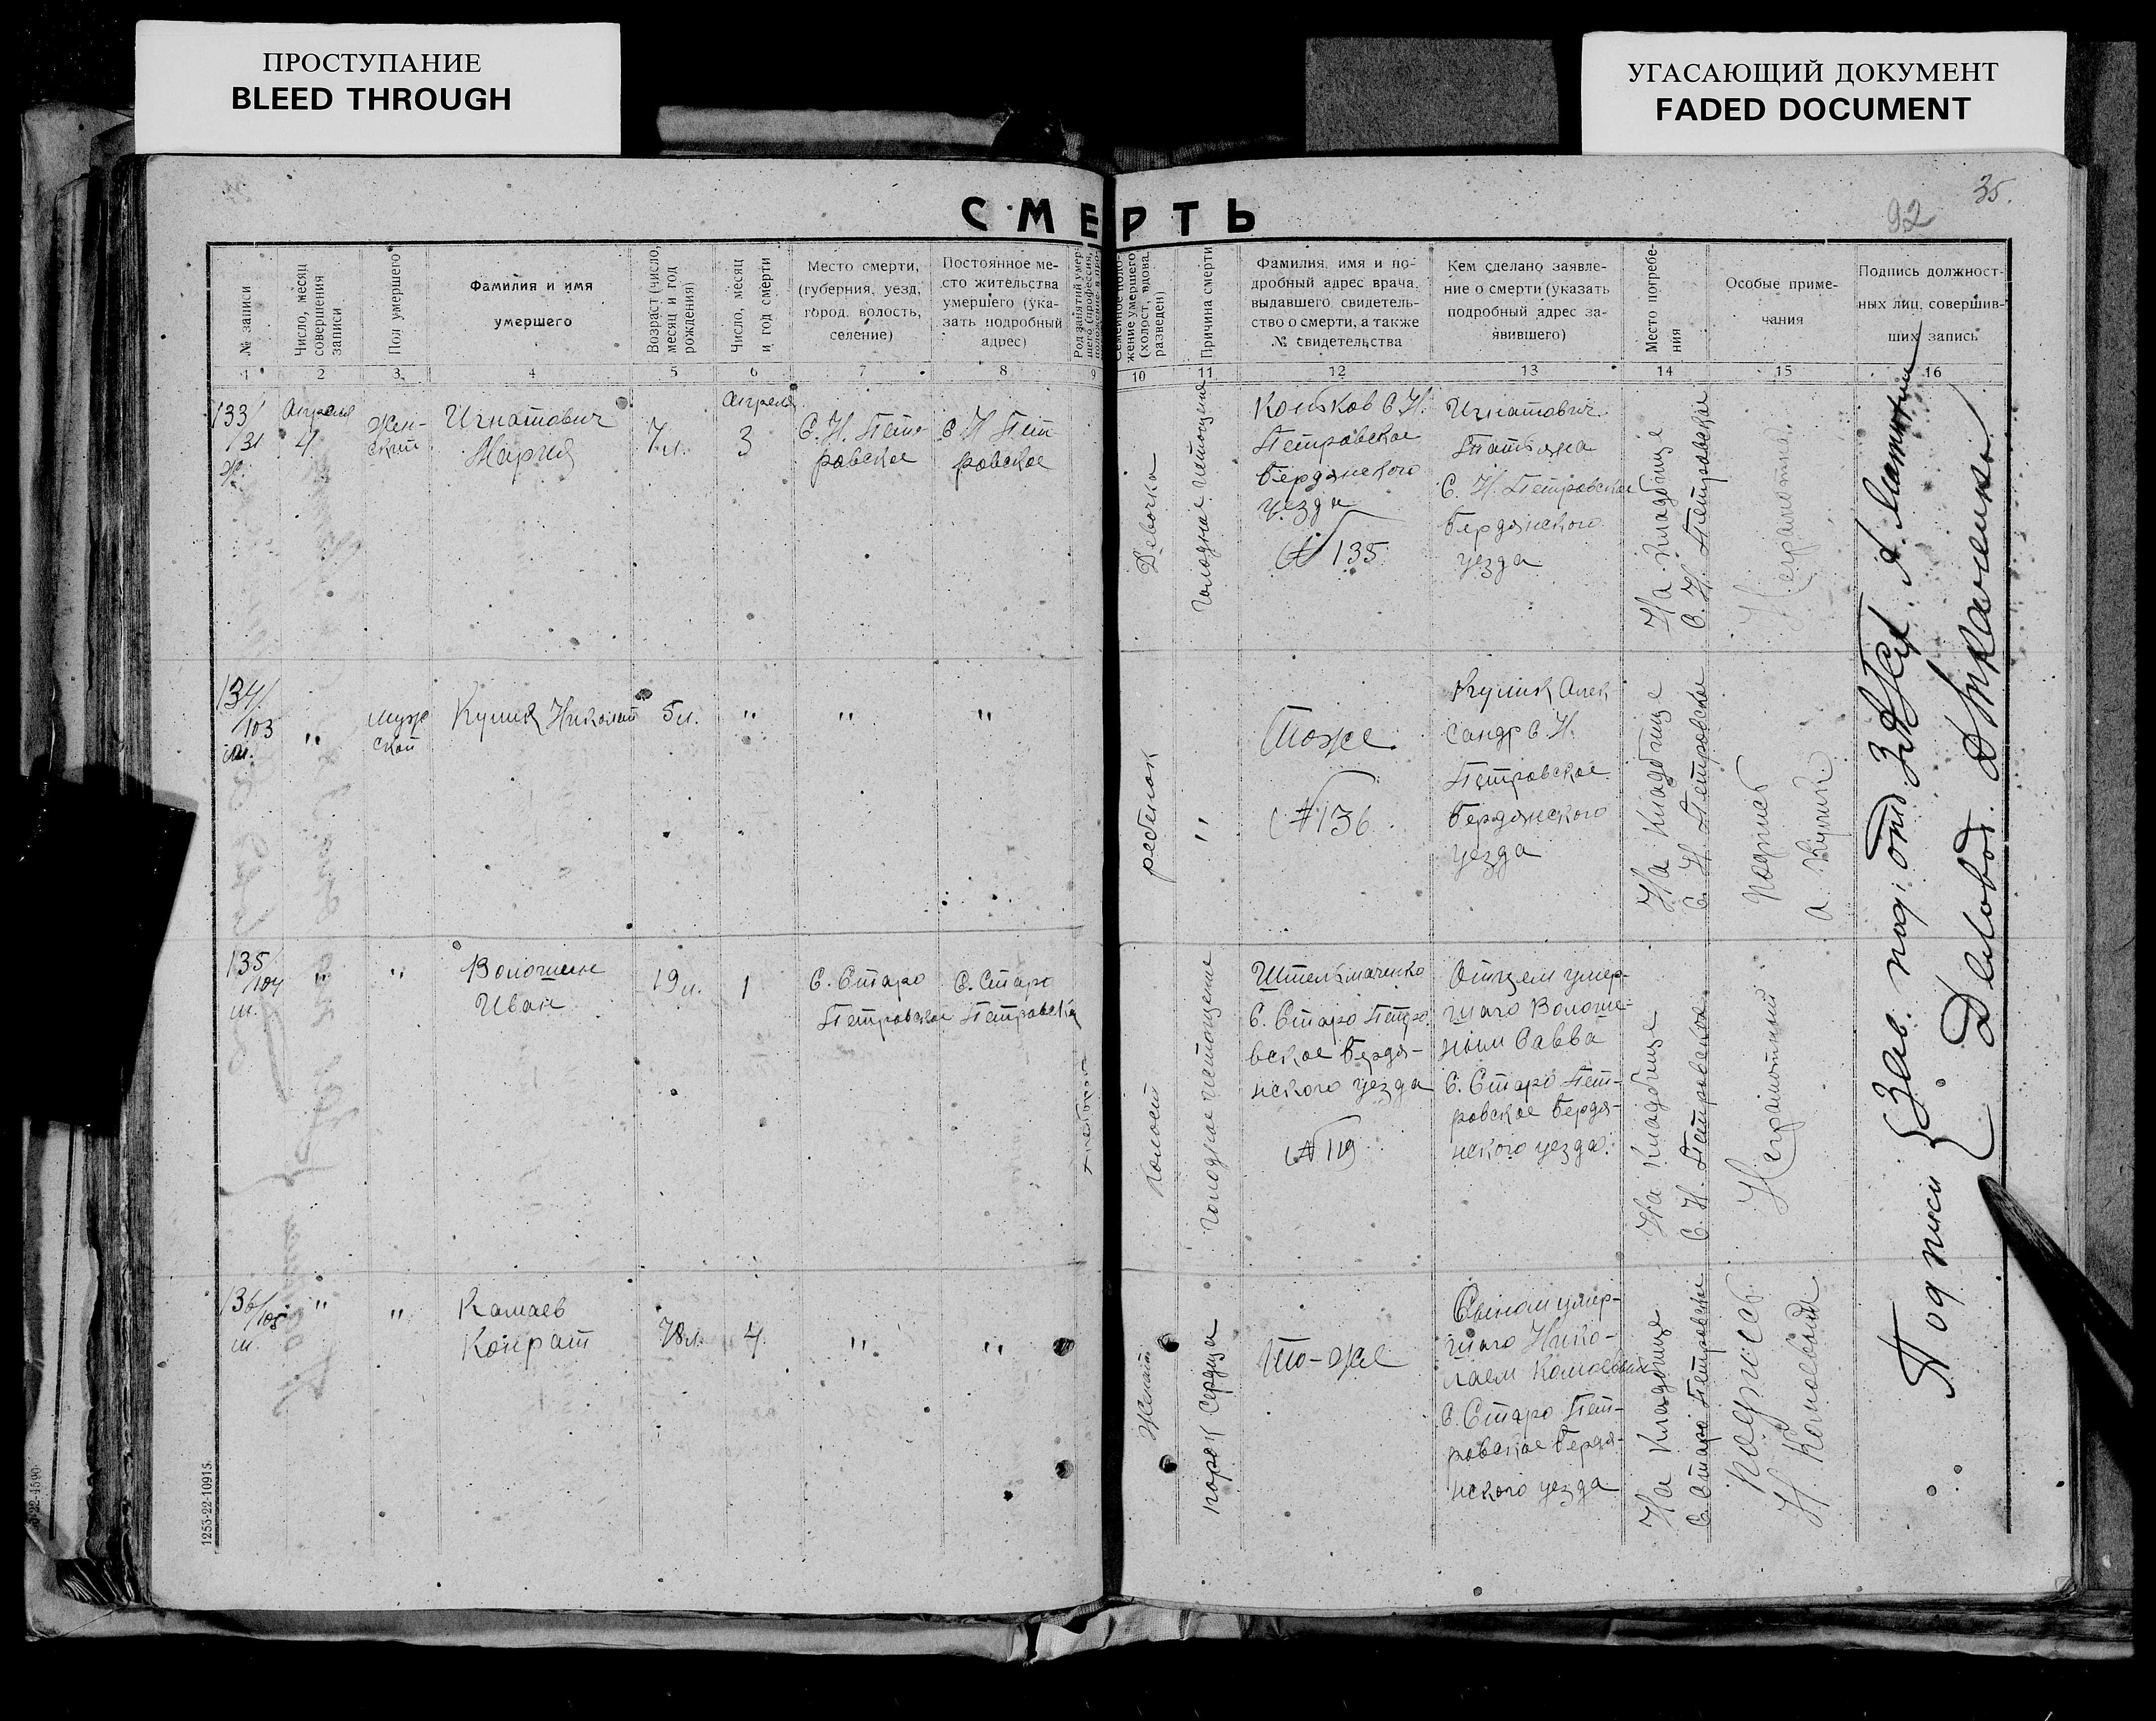 ПРОСТУПАНИЕ
BLEED THROUGH
УГАСАЮЩИЙ ДОКУМЕНТ
FADED DOCUMENT
35.
92
СМЕРТЬ
№ записи
Число, месяц
совершения
записи
Пол умершего
Фамилия и имя
умершего
Возраст (число,
месяц и год
рождения)
Число, месяц
и год смерти
Место смерти,
(губерния, уезд,
город, волость,
селение)
Постоянное ме-
сто жительства
умершего (ука-
зать подробный
адрес)
Род занятий умер-
шего (профессия,
Семейное поло-
жение умершего
(холост, вдова,
разведен)
Причина смерти
Фамилия, имя и по-
дробный адрес врача,
выдавшего свидетель-
ство о смерти, а также
№ свидетельства
Кем сделано заявле-
ние о смерти (указать
подробный адрес за-
явившего)
Место погребе-
ния
Особые приме-
чания
Подпись должност-
ных лиц, совершив-
ших запись
1 2 3 4 5 6 7 8 9 10 11 12 13 14 15 16
133/
/31
ж.
Апреля
4
Жен-
ский
Игнатович
Мария
7 л.
Апреля
3
С. Н. Пет-
ровское
С Н Пет
ровское
Девочка
Голодное истощение
Коньков С Н.
Петровское
Бердянского
уезда
№ 135
Игнатович
Татьяна
С. Н. Петровское
Бердянского
уезда
На кладбище
С. Н. Петровское
Неграмотная
134/
/103
м.
"
Муж
ской
Кулик Николай
5 л.
"
"
"
ребенок
"
Тоже
№ 136
Кулик Алек
сандр С Н.
Петровское
Бердянского
уезда
На кладбище
С. Н. Петровское
Подпись
А. Кулик
135/
/104
м.
"
"
Волошин
Иван
19 л.
1
С. Старо
Петровское
С. Старо
Петровское
хлебороб
Холост
Голодное истощение
Штельмаченко
С. Старо Петро
вское Бердя-
нского уезда
№ 119
Отцем умер-
шаго Волоши-
ным Савва
С. Старо Пет-
ровское Бердя-
нского уезда.
На кладбище
С. Н. Петровское
Неграмотный
136/105
м.
"
"
Камаев
Конрат
78 л.
4.
"
"
Женат
порок сердца
То-же
Сыном умер-
шаго Нико-
лаем
С. Старо Пет-
ровское Бердя-
нского уезда
На кладбище
С. Старо Петровское
Подпись
Подписи { Зав. под отд ЗАГС
Деловод.
1253-22-10915.